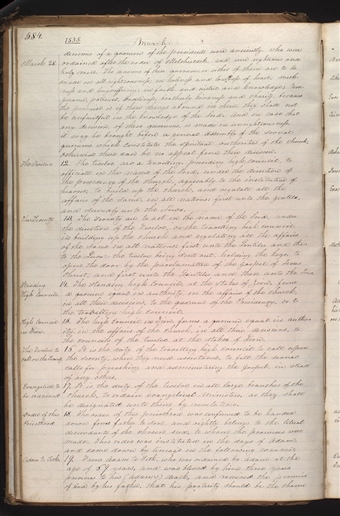 684
1835
(March)
March 28.
decisions of a quorum of three presidents were anciently who were
ordained after the order of Melchizedek, and were righteous and
holy men. The decisions of these quorums or either of them are to be
made in all righteousness, in holiness and lowliness of heart, meek-
ness and long suffering, in faith and virtue and knowledge, tem-
perance, patience, godliness, brotherly kindness and charity, because
the promise is, if these things abound in them, they shall not
be unfruitful in the knowledge of the Lord. And in case that
any decision of these quorums is made in unrighteousness,
it may be brought before a general assembly of the several
quorums which constitute the spiritual authorities of the church,
otherwise there can be no appeal from their decision.
The Twelve
12. The Twelve are a travelling presiding high council, to
officiate in the name of the Lord, under the direction of
the presidency of the church, agreeably to the institution of
heaven, to build up the church, and regulate all the
affairs of the same, in all nations: first unto the gentiles,
and secondly unto the Jews.
The Seventy
13. The Seventy are to act in the name of the Lord, under
the direction of the Twelve, or the travelling high council,
in building up the church and regulating all the affairs
of the same in all nations: first unto the Gentiles and then
to the Jews: the Twelve being sent out, holding the keys, to
open the door by the proclamation of the gospel of Jesus
Christ, and first unto the Gentiles and then unto the Jews.
Standing
High Councils
14. The standing high councils, at the stakes of Zion, form
a quorum equal in authority, in the affairs of the church,
in all their decisions, to the quorum of the Presidency, or to
the travelling high council.
High Council
in Zion
15. The high council in Zion, forms a quorum equal in autho-
rity, in the affairs of the church, in all their decisions, to
the councils of the Twelve at the stakes of Zion.
16. It is the duty of the travelling high council to call upon
the Seventy, when they need assistance, to fill the several
calls for preaching and administering the gospel, instead
of any others.
Evangelists to
be ordained
17. It is the duty of the twelve in all large branches of the
church, to ordain evangelical ministers, as they shall
be designated unto them by revelation.
Order of this
Priesthood
18. The order of this priesthood was confirmed to be handed
down from father to son, and rightly belongs to the literal
descendants of the chosen seed, to whom the promises were
made. This order was instituted in the days of Adam,
and came down by lineage in the following manner:
Adam to Seth
19. From Adam to Seth, who was ordained by Adam at the
age of 69 years, and was blessed by him three years
previous to his (Adam's) death, and received the promise
of God by his father, that his posterity should be the chosen